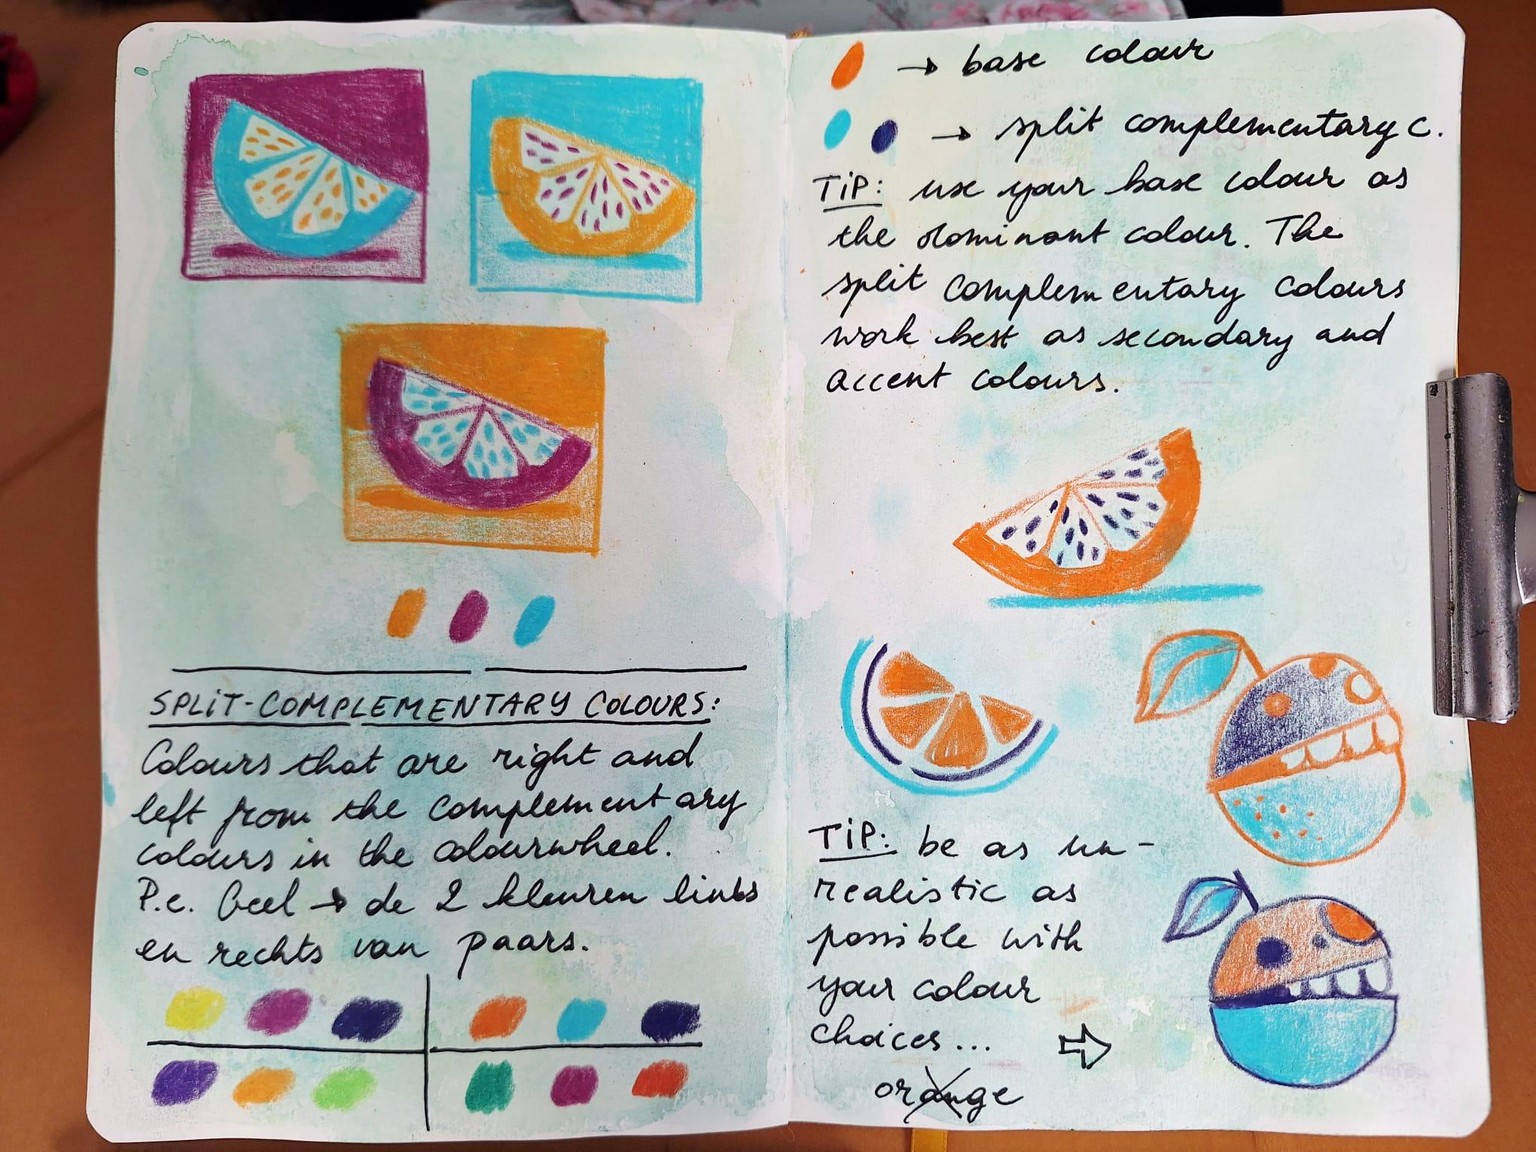 SPLIT-COMPLEMENTARY COLOURS:
Colours that are right and
left from the complementary
colours in the colourwheel.
P.e. Geel → de 2 kleuren links
en rechts van paars.
→ base colour
→ split complementary c.
TIP: use your base colour as
the dominant colour. The
split complementary colours
work best as secondary and
accent colours.
TIP: be as un-
realistic as
possible with
your colour
choices...
orange